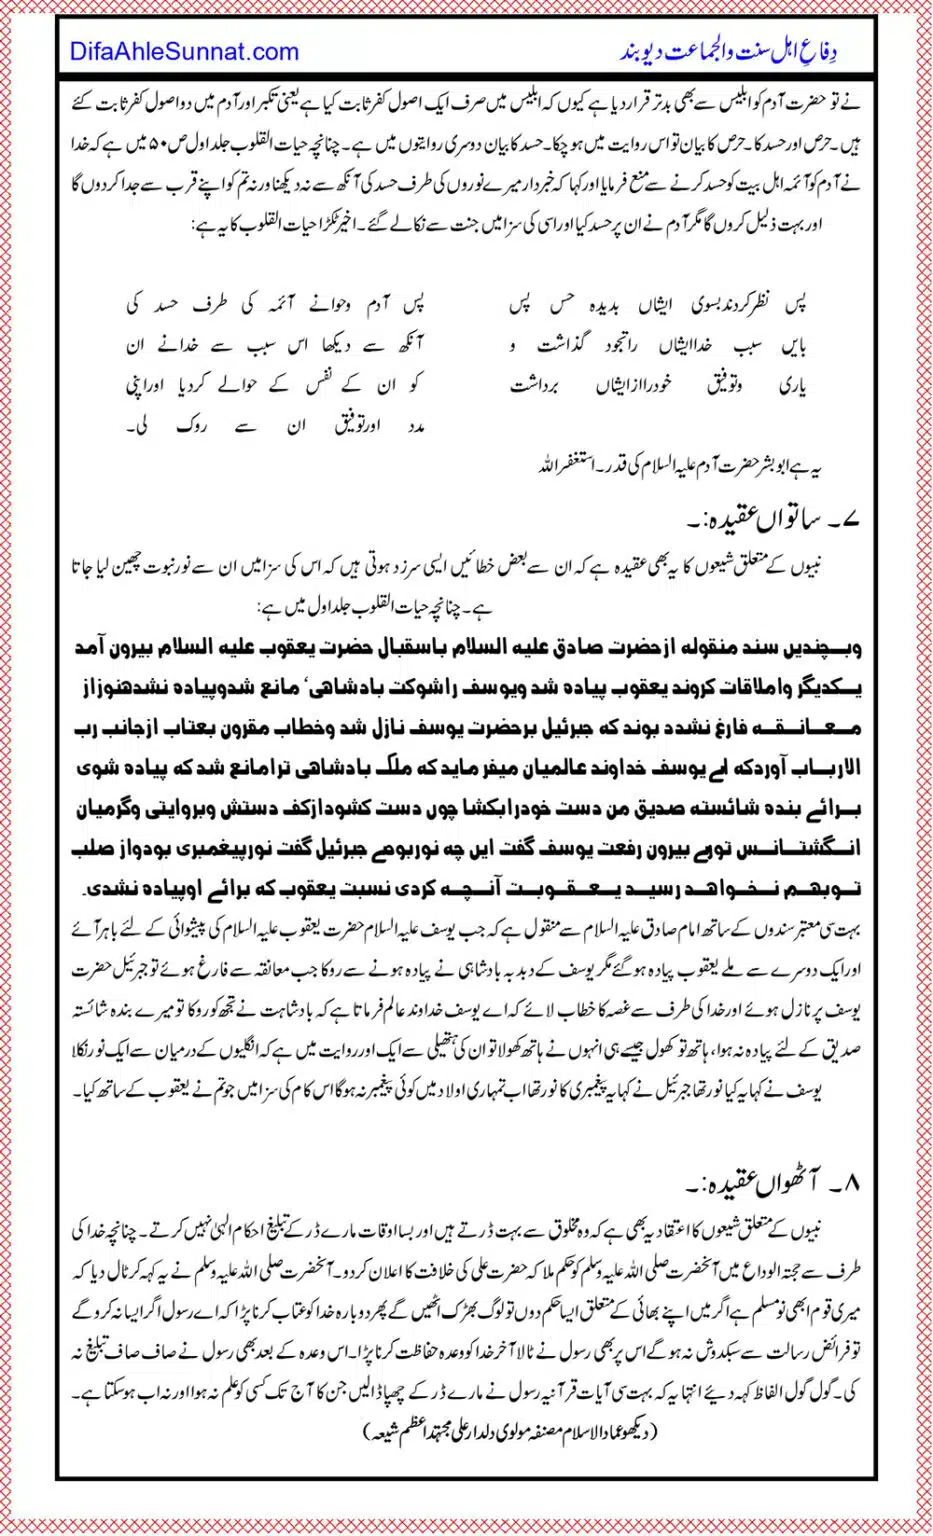 DifaAhleSunnat.com
دِفاعِ اہل سنت والجماعت دیوبند
نے تو حضرت آدم کو ابلیس سے بھی بدتر قرار دیا ہے کیوں کہ ابلیس میں صرف ایک اصول کفر ثابت کیا ہے یعنی تکبر اور آدم میں دو اصول کفر ثابت کئے
ہیں۔ حرص اور حسد کا۔ حرص کا بیان تو اس روایت میں ہو چکا۔ حسد کا بیان دوسری روایتوں میں ہے۔ چنانچہ حیات القلوب جلد اول ص ۵۰ میں ہے کہ خدا
نے آدم کو آئمہ اہل بیت کو حسد کرنے سے منع فرمایا اور کہا کہ خبردار میرے نوروں کی طرف حسد کی آنکھ سے نہ دیکھنا ورنہ تم کو اپنے قرب سے جدا کردوں گا
اور بہت ذلیل کروں گا مگر آدم نے ان پر حسد کیا اور اسی کی سزا میں جنت سے نکالے گئے۔ اخیر ٹکڑا حیات القلوب کا یہ ہے:
پس نظر کردند بسوی ایشاں بدیدہ حس پس
بایں سبب خدا ایشاں راتجود گذاشت و
یاری وتوفیق خودرا ازایشاں برداشت
پس آدم وحوانے آئمہ کی طرف حسد کی
آنکھ سے دیکھا اس سبب سے خدانے ان
کو ان کے نفس کے حوالے کردیا اوراپنی
مدد اورتوفیق ان سے روک لی۔
یہ ہے ابوبشر حضرت آدم علیہ السلام کی قدر۔ استغفر اللہ
۷۔ ساتواں عقیدہ:۔
نبیوں کے متعلق شیعوں کا یہ بھی عقیدہ ہے کہ ان سے بعض خطائیں ایسی سرزد ہوتی ہیں کہ اس کی سزا میں ان سے نور نبوت چھین لیا جاتا
ہے۔ چنانچہ حیات القلوب جلد اول میں ہے:
وبچندیں سند منقولہ ازحضرت صادق علیہ السلام باسقبال حضرت یعقوب علیہ السلام بیرون آمد
یکدیگر واملاقات کروند یعقوب پیادہ شد ویوسف راشوکت بادشاھی' مانع شدوپیادہ نشدھنوزاز
معانقہ فارغ نشدد بوند کہ جبرئیل برحضرت یوسف نازل شد وخطاب مقرون بعتاب ازجانب رب
الارباب آوردکہ اے یوسف خداوند عالمیان میفر ماید کہ ملک بادشاھی ترامانع شد کہ پیادہ شوی
برائے بندہ شائستہ صدیق من دست خودرابکشا چوں دست کشودازکف دستش وبروایتی وگرمیان
انگشتانس تورے بیرون رفعت یوسف گفت ایں چہ نوربودے جبرئیل گفت نورپیغمبری بودواز صلب
توبھم نخواھد رسید یعقوبت آنچہ کردی نسبت یعقوب کہ برائے اوپیادہ نشدی۔
بہت سی معتبر سندوں کے ساتھ امام صادق علیہ السلام سے منقول ہے کہ جب یوسف علیہ السلام حضرت یعقوب علیہ السلام کی پیشوائی کے لئے باہر آئے
اور ایک دوسرے سے ملے یعقوب پیادہ ہوگئے مگر یوسف کے دبدبہ بادشاہی نے پیادہ ہونے سے روکا جب معانقہ سے فارغ ہوئے تو جبرئیل حضرت
یوسف پر نازل ہوئے اور خدا کی طرف سے غصہ کا خطاب لائے کہ اے یوسف خداوند عالم فرماتا ہے کہ بادشاہت نے تجھ کو روکا تو میرے بندہ شائستہ
صدیق کے لئے پیادہ نہ ہوا، ہاتھ تو کھول جیسے ہی انہوں نے ہاتھ کھولا تو ان کی ہتھیلی سے ایک اور روایت میں ہے کہ انگلیوں کے درمیان سے ایک نور نکلا
یوسف نے کہا یہ کیا نور تھا جبرئیل نے کہا یہ پیغمبری کا نور تھا اب تمہاری اولاد میں کوئی پیغمبر نہ ہوگا اس کام کی سزا میں جو تم نے یعقوب کے ساتھ کیا۔
۸۔ آٹھواں عقیدہ:۔
نبیوں کے متعلق شیعوں کا اعتقاد یہ بھی ہے کہ وہ مخلوق سے بہت ڈرتے ہیں اور بسا اوقات مارے ڈر کے تبلیغ احکام الٰہی نہیں کرتے۔ چنانچہ خدا کی
طرف سے حجتہ الوداع میں آنحضرت صلی اللہ علیہ وسلم کو حکم ملا کہ حضرت علی کی خلافت کا اعلان کردو۔ آنحضرت صلی اللہ علیہ وسلم نے یہ کہہ کر ٹال دیا کہ
میری قوم ابھی نو مسلم ہے اگر میں اپنے بھائی کے متعلق ایسا حکم دوں تو لوگ بھڑک اٹھیں گے پھر دوبارہ خدا کو عتاب کرنا پڑا کہ اے رسول اگر ایسا نہ کرو گے
تو فرائض رسالت سے سبکدوش نہ ہوگے اس پر بھی رسول نے ٹالا آخر خدا کو وعدہ حفاظت کرنا پڑا۔ اس وعدہ کے بعد بھی رسول نے صاف صاف تبلیغ نہ
کی۔ گول گول الفاظ کہہ دیئے انتہا یہ کہ بہت سی آیات قرآنیہ رسول نے مارے ڈر کے چھپا ڈالیں جن کا آج تک کسی کو علم نہ ہوا اور نہ اب ہوسکتا ہے۔
(دیکھو عماد الاسلام مصنفہ مولوی دلدار علی مجتہد اعظم شیعہ)